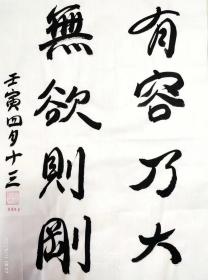 有容乃大
無欲則剛
壬寅四月十三